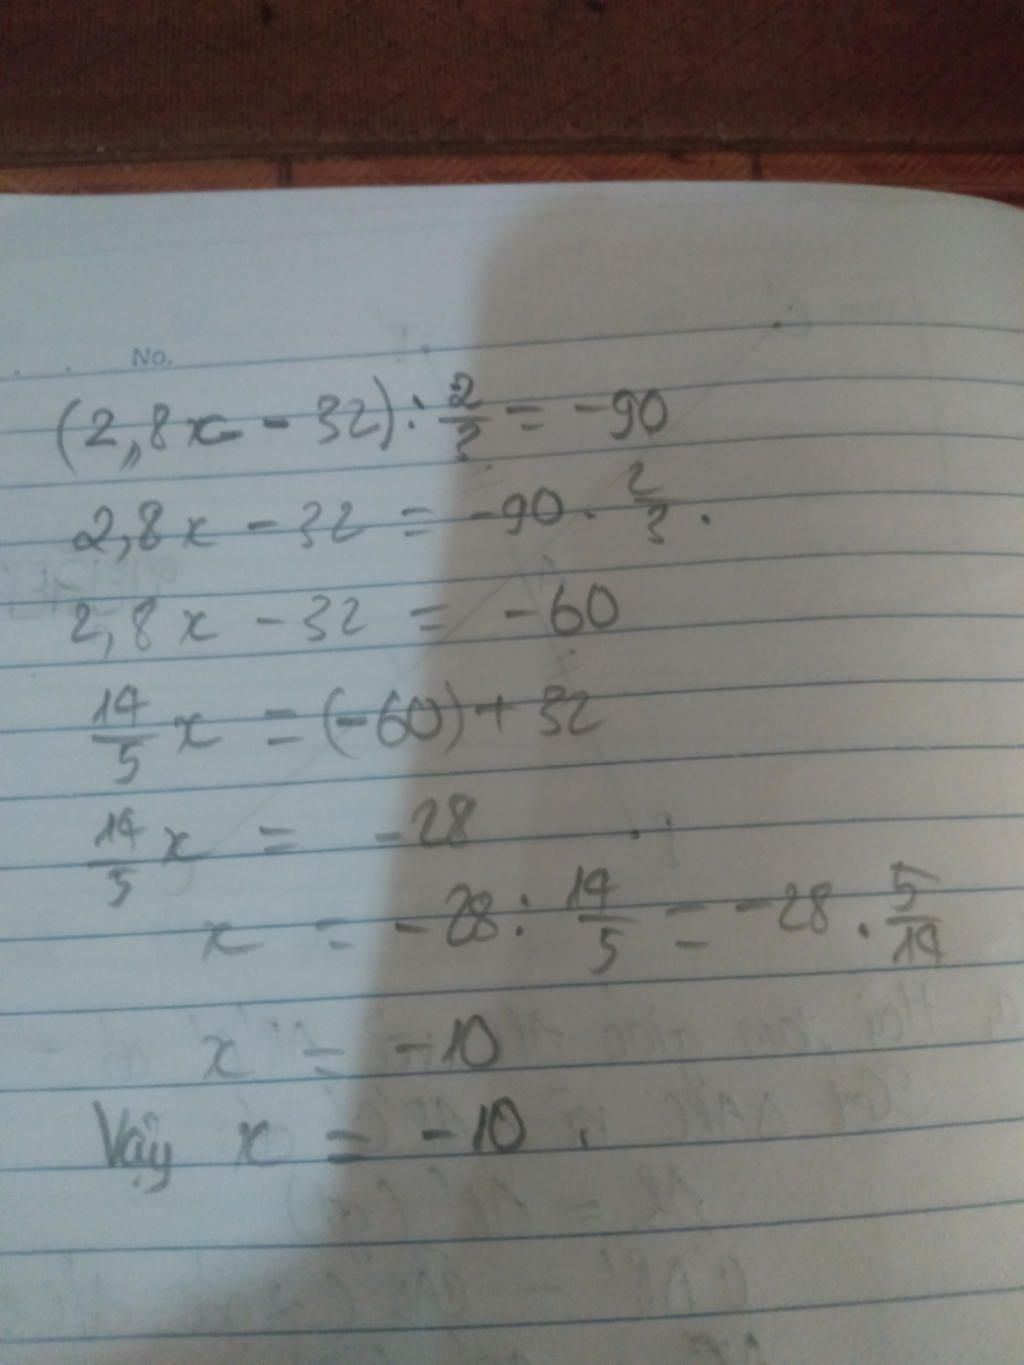 No.
(2,8x - 32) : 2/3 = -90
2,8x - 32 = -90 . 2/3 .
2,8x - 32 = -60
14/5 x = (-60) + 32
14/5 x = -28
x = -28 : 14/5 = -28 . 5/14
x = -10
Vậy x = -10 .